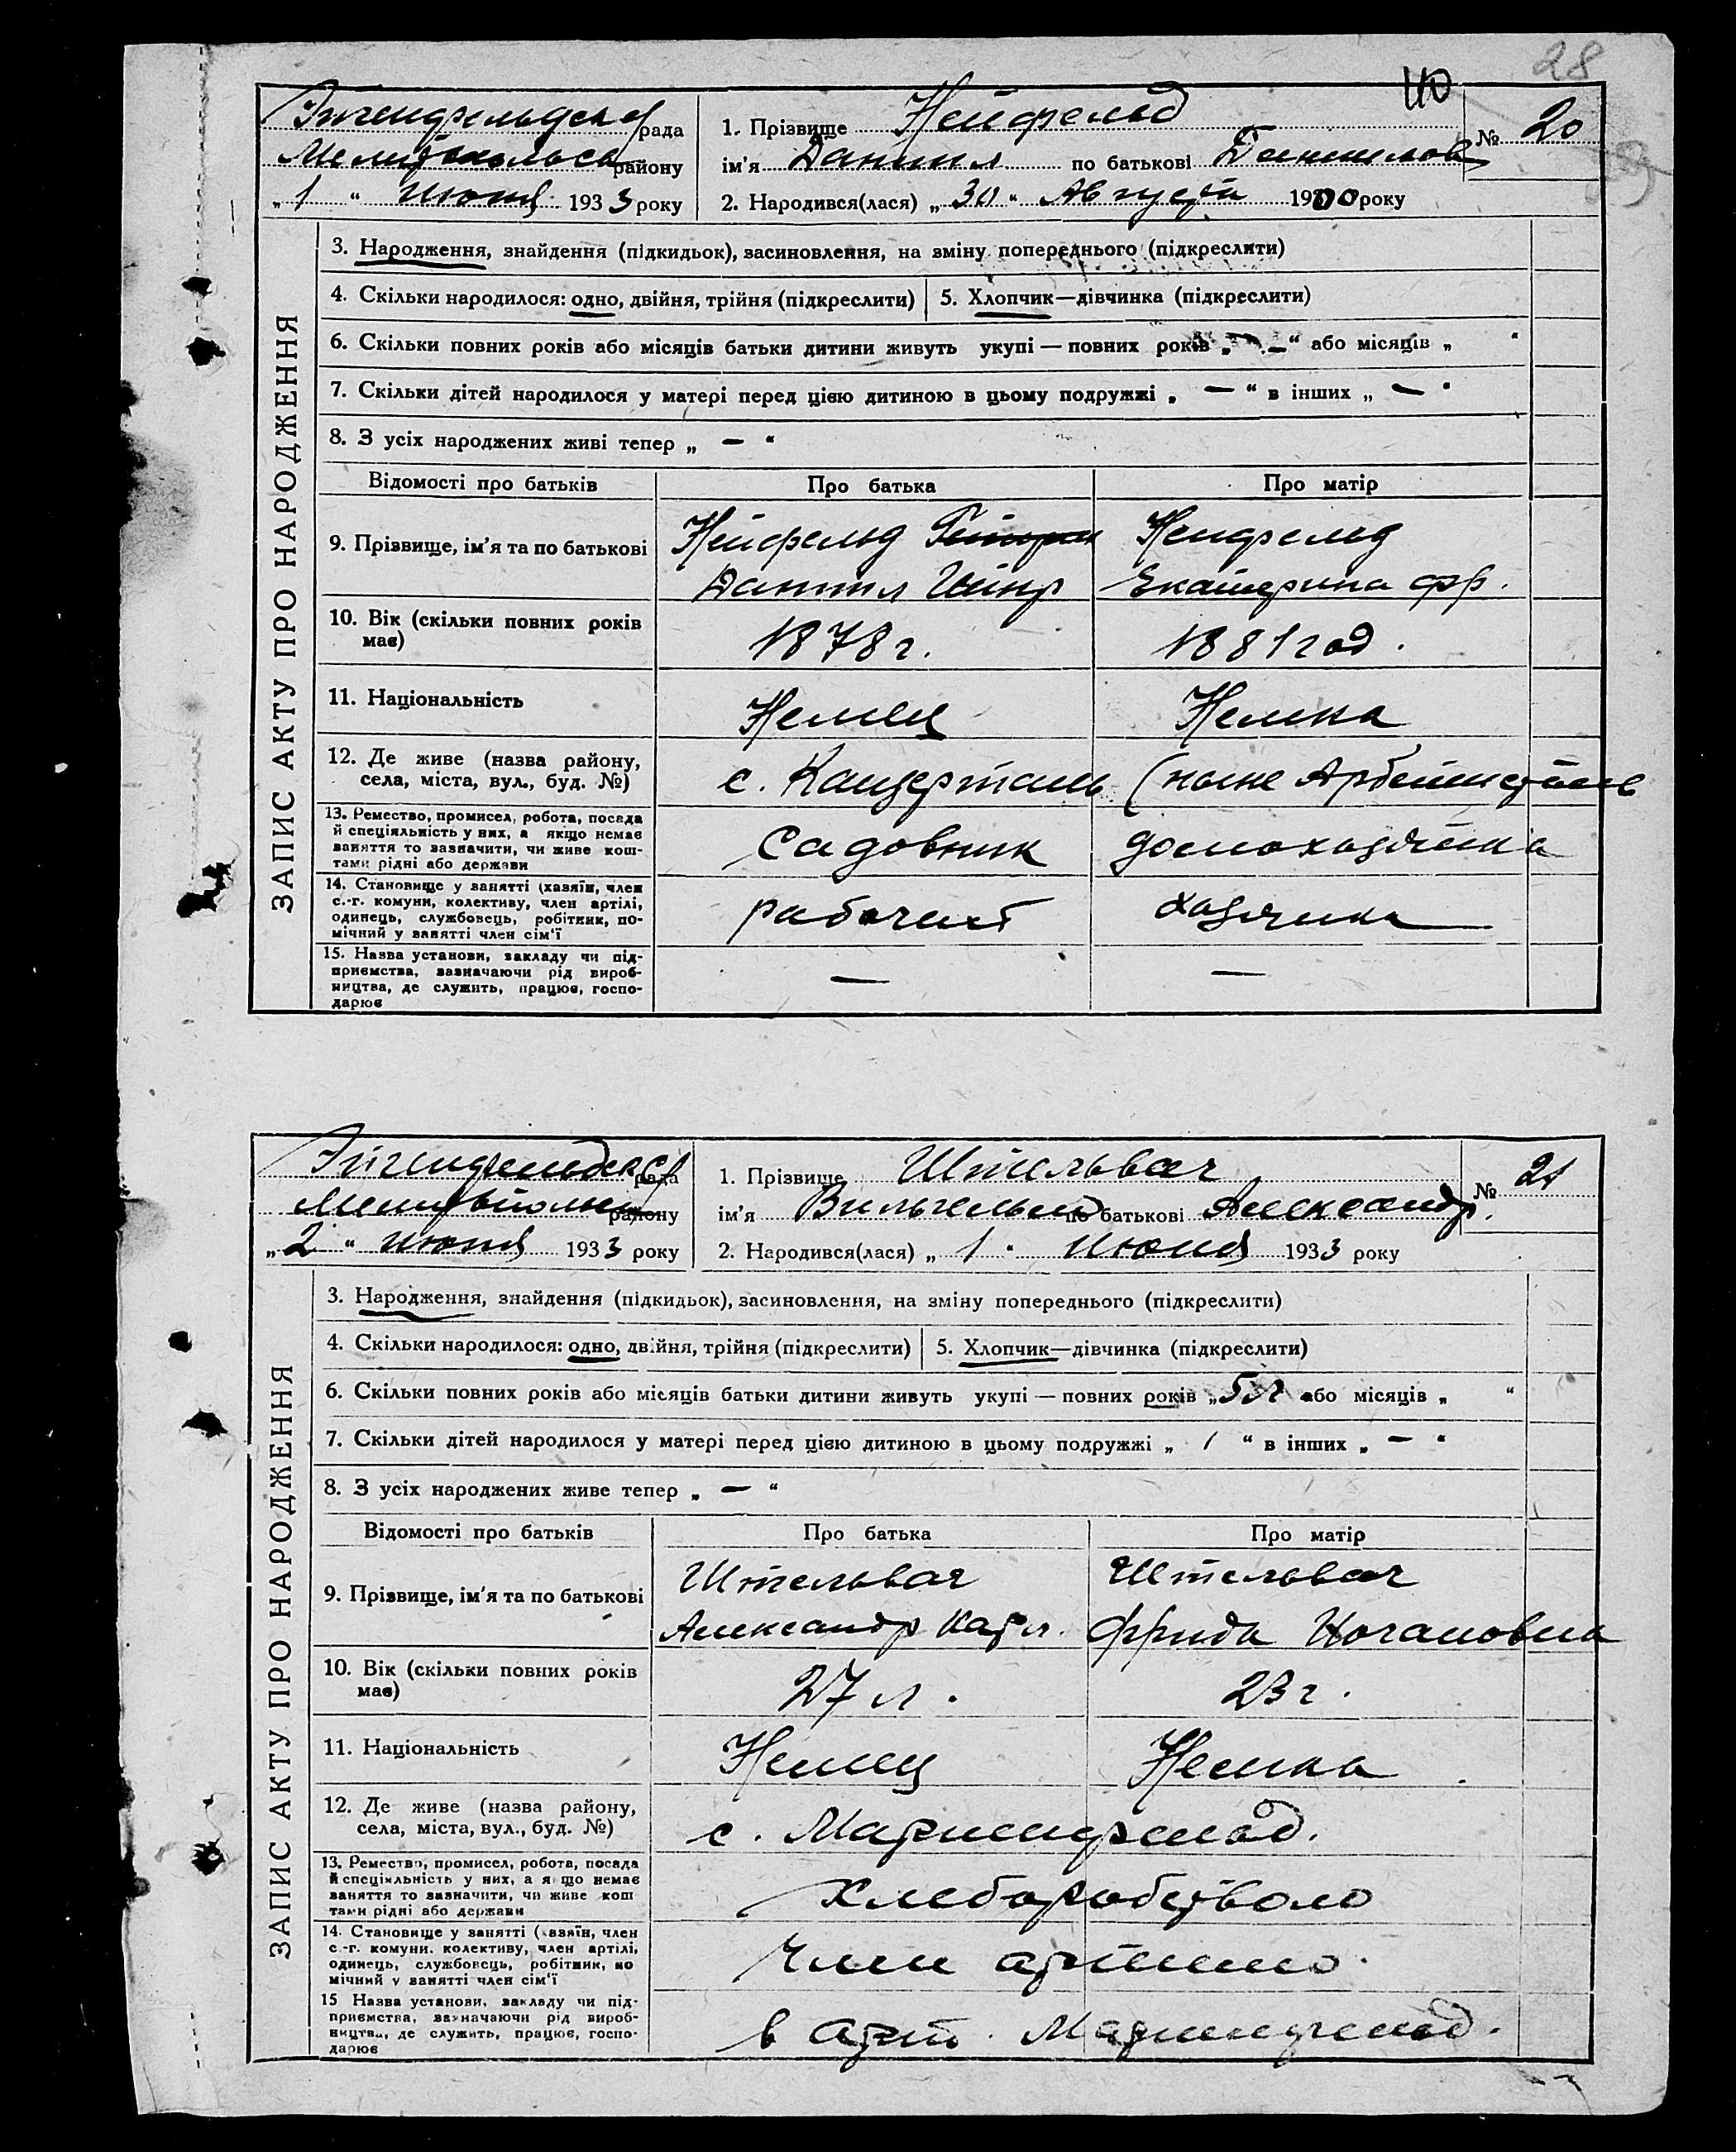 28
110
Эйгенфельдская рада
1. Прізвище Нейфельд
№ 20
району
ім'я Даниил по батькові Данилов
„ 1 “ Июня 1933 року
2. Народився(лася) „ 30 “ Августа 1900 року
ЗАПИС АКТУ ПРО НАРОДЖЕННЯ
3. Народження, знайдення (підкидьок), засиновлення, на зміну попереднього (підкреслити)
4. Скільки народилося: одно, двійня, трійня (підкреслити)
5. Хлопчик—дівчинка (підкреслити)
6. Скільки повних років або місяців батьки дитини живуть укупі — повних років „ — “ або місяців „ “
7. Скільки дітей народилося у матері перед цією дитиною в цьому подружжі „ — “ в інших „ — “
8. З усіх народжених живі тепер „ — “
Відомості про батьків Про батька Про матір
9. Прізвище, ім'я та по батькові
Нейфельд
Даниил
Нейфельд
Екатерина Фр.
10. Вік (скільки повних років
має)
1878 г.
1881 год.
11. Національність
Немец
Немка
12. Де живе (назва району,
села, міста, вул., буд. №)
с. (ныне
13. Ремество, промисел, робота, посада
й спеціяльність у них, а якщо немає
заняття то зазначити, чи живе кош-
тами рідні або держави
Садовник
домохозяйка
14. Становище у занятті (хазяїн, член
с.-г. комуни, колективу, член артілі,
одинець, службовець, робітник, по-
мічний у занятті член сім'ї
рабочий
хозяйка
15. Назва установи, закладу чи під-
приємства, зазначаючи рід вироб-
ництва, де служить, працює, госпо-
дарює
—
—
Эйгенфельдская рада
1. Прізвище Штельвач
№ 21
району
ім'я Вильгельм по батькові Александр.
„ 2 “ июня 1933 року
2. Народився(лася) „ 1 “ Июня 1933 року
ЗАПИС АКТУ ПРО НАРОДЖЕННЯ
3. Народження, знайдення (підкидьок), засиновлення, на зміну попереднього (підкреслити)
4. Скільки народилося: одно, двійня, трійня (підкреслити)
5. Хлопчик—дівчинка (підкреслити)
6. Скільки повних років або місяців батьки дитини живуть укупі — повних років „ 5 л “ або місяців „ “
7. Скільки дітей народилося у матері перед цією дитиною в цьому подружжі „ 1 “ в інших „ — “
8. З усіх народжених живе тепер „ — “
Відомості про батьків Про батька Про матір
9. Прізвище, ім'я та по батькові
Штельвач
Александр Карл.
Штельвач
Фрида Иогановна
10. Вік (скільки повних років
має)
27 л.
23 г.
11. Національність
Немец
Немка
12. Де живе (назва району,
села, міста, вул., буд. №)
с. Мариенфельд.
13. Ремество, промисел, робота, посада
й спеціяльність у них, а якщо немає
заняття то зазначити, чи живе кош
тами рідні або держави
хлеборобством
14. Становище у занятті (хазяїн, член
с.-г. комуни, колективу, член артілі,
одинець, службовець, робітник, по
мічний у занятті член сім'ї
Член артели.
15 Назва установи, закладу чи під-
приємства, зазначаючи рід вироб-
ництва, де служить, працює, госпо-
дарює
в арт. Мариенфельд.